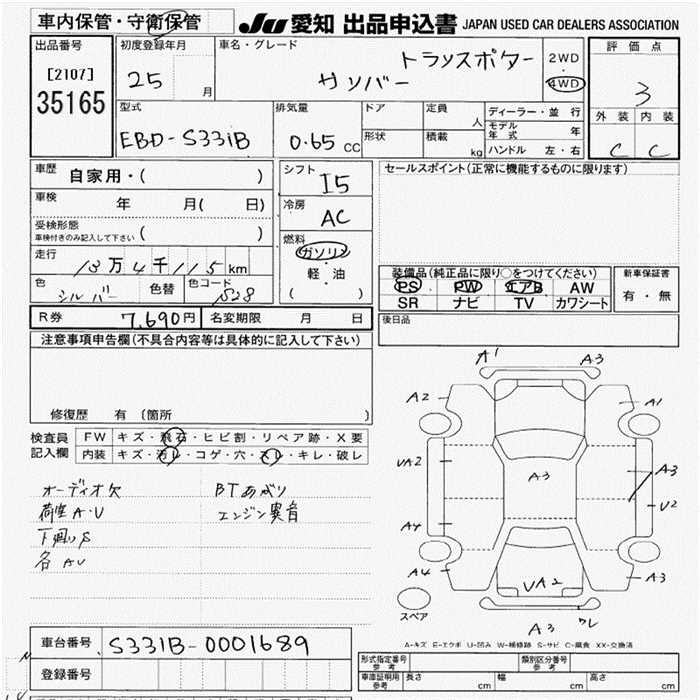 車内保管・守衛保管
JU 愛知 出品申込書 JAPAN USED CAR DEALERS ASSOCIATION
出品番号 初度登録年月 車名・グレード トランスポター 2WD 評価点
[2107] 25 月 サンバー 4WD 3
35165 型式 排気量 ドア 定員 人 ディーラー・並行 外装 内装
EBD-S331B 0.65 CC 形状 積載 kg モデル年式 年 C C
ハンドル 左・右
車歴 自家用・( ) シフト I5 セールスポイント(正常に機能するものに限ります)
車検 年 月( 日) 冷房 AC
受検形態 車検付きのみ記入して下さい ( )
走行 13万4千115km 燃料 ガソリン 軽・油 ( )
色 シルバー 色替 色コード S28
装備品(純正品に限り○をつけてください) 新車保証書
PS PW エアB AW 有・無
SR ナビ TV カワシート
R券 7,690円 名変期限 月 日 後日品
注意事項申告欄(不具合内容等は具体的に記入して下さい)
修復歴 有 (箇所 )
検査員記入欄 FW キズ・飛石・ヒビ割・リペア跡・X要
内装 キズ・汚レ・コゲ・穴・スレ・キレ・破レ
オーディオ欠 BTあがり
荷室A・U エンジン異音
下廻りS
各AU
A1 A3
A2 A1
UA2 A3 A3
U2
A4
A4 UA2 A3
スペア
A3 ワレ
A-キズ E-エクボ U-凹み W-補修跡 S-サビ C-腐食 XX-交換済
車台番号 S331B-0001689
登録番号
形式指定番号 参考 類別区分番号 参考
車庫証明用 参考 長さ cm 幅 cm 高さ cm